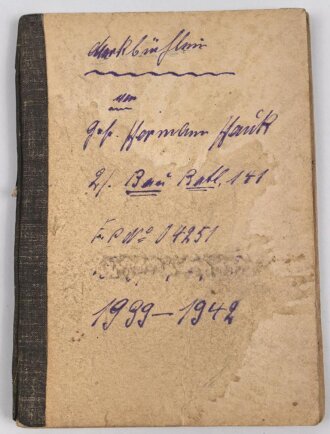 Merkbüchlein
von
Gefr. Hermann Hauk
2/. Bau Batl. 181
F.P. No 04251
1939–1942